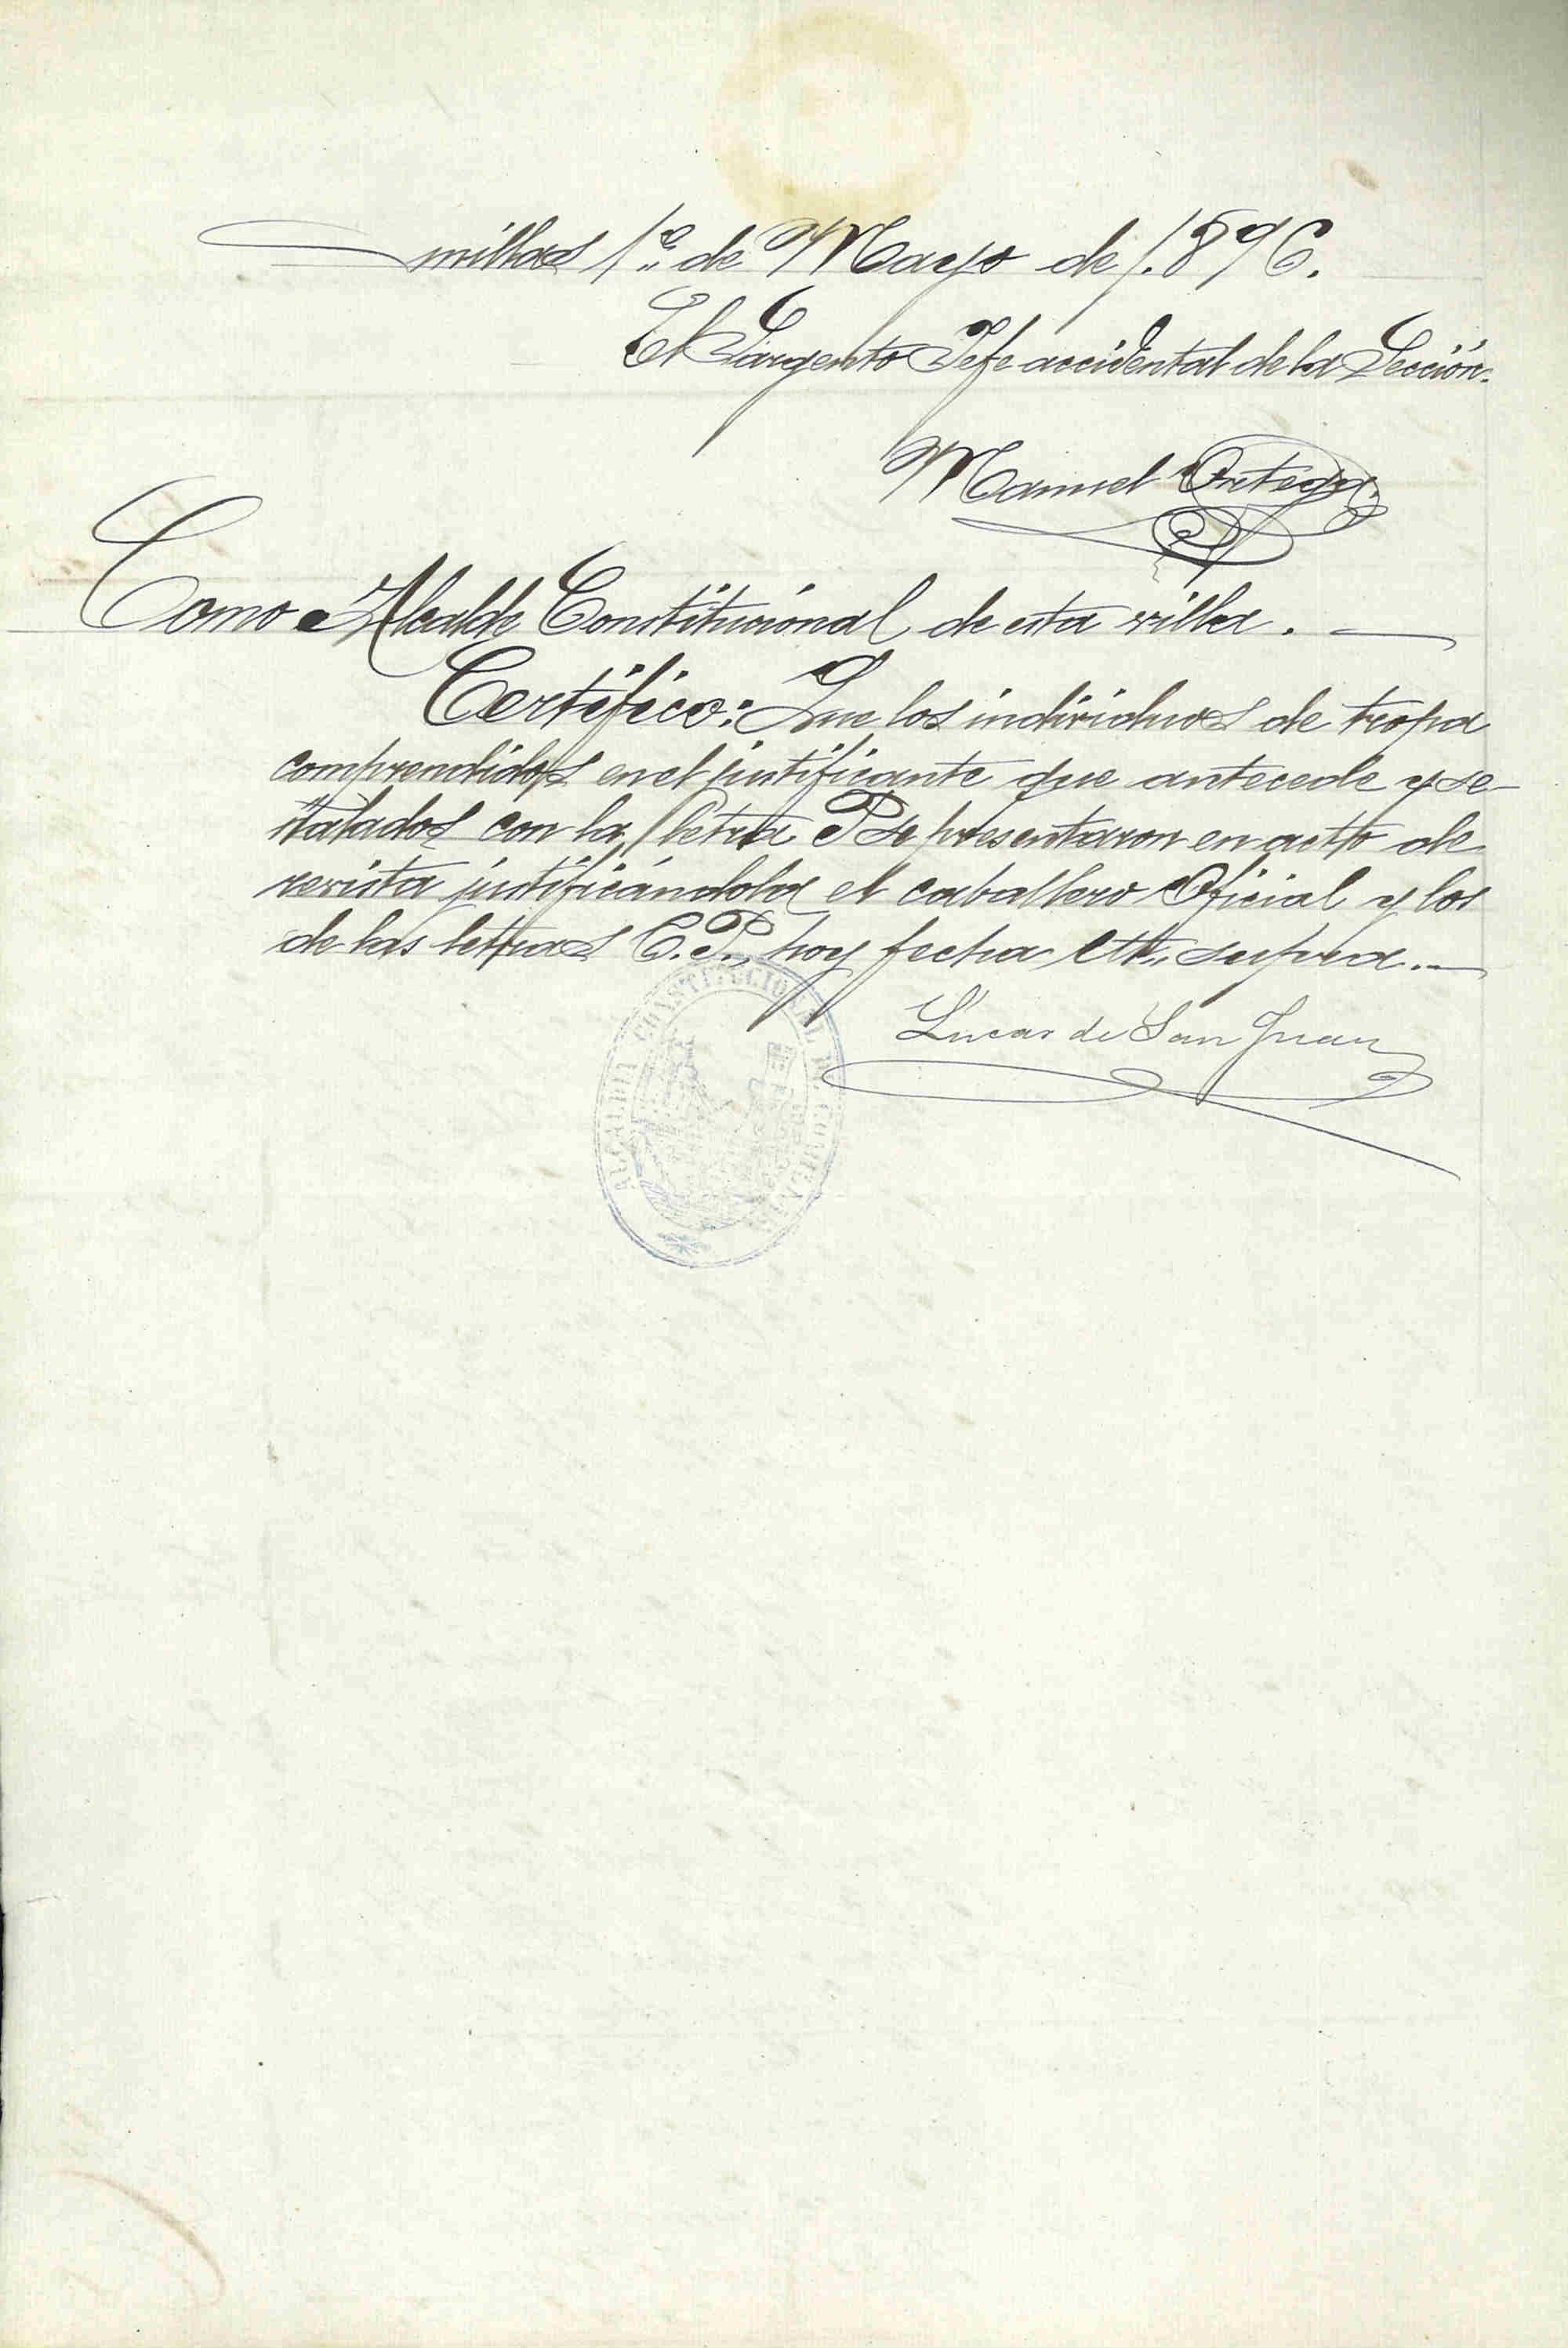 millas 1º de Mayo de 1.896.
El Sargento Jefe accidental de la Sección.
Manuel Ortega
Como Alcalde Constitucional de esta villa. —
Certifico: Que los individuos de tropa
comprendidos en el justificante que antecede y se-
ñalados con la letra P se presentaron en acto de
revista justificándola el caballero Oficial y los
de las letras C.P., hoy fecha ut supra. —
Lucas de San Juan
ALCALDIA CONSTITUCIONAL DE